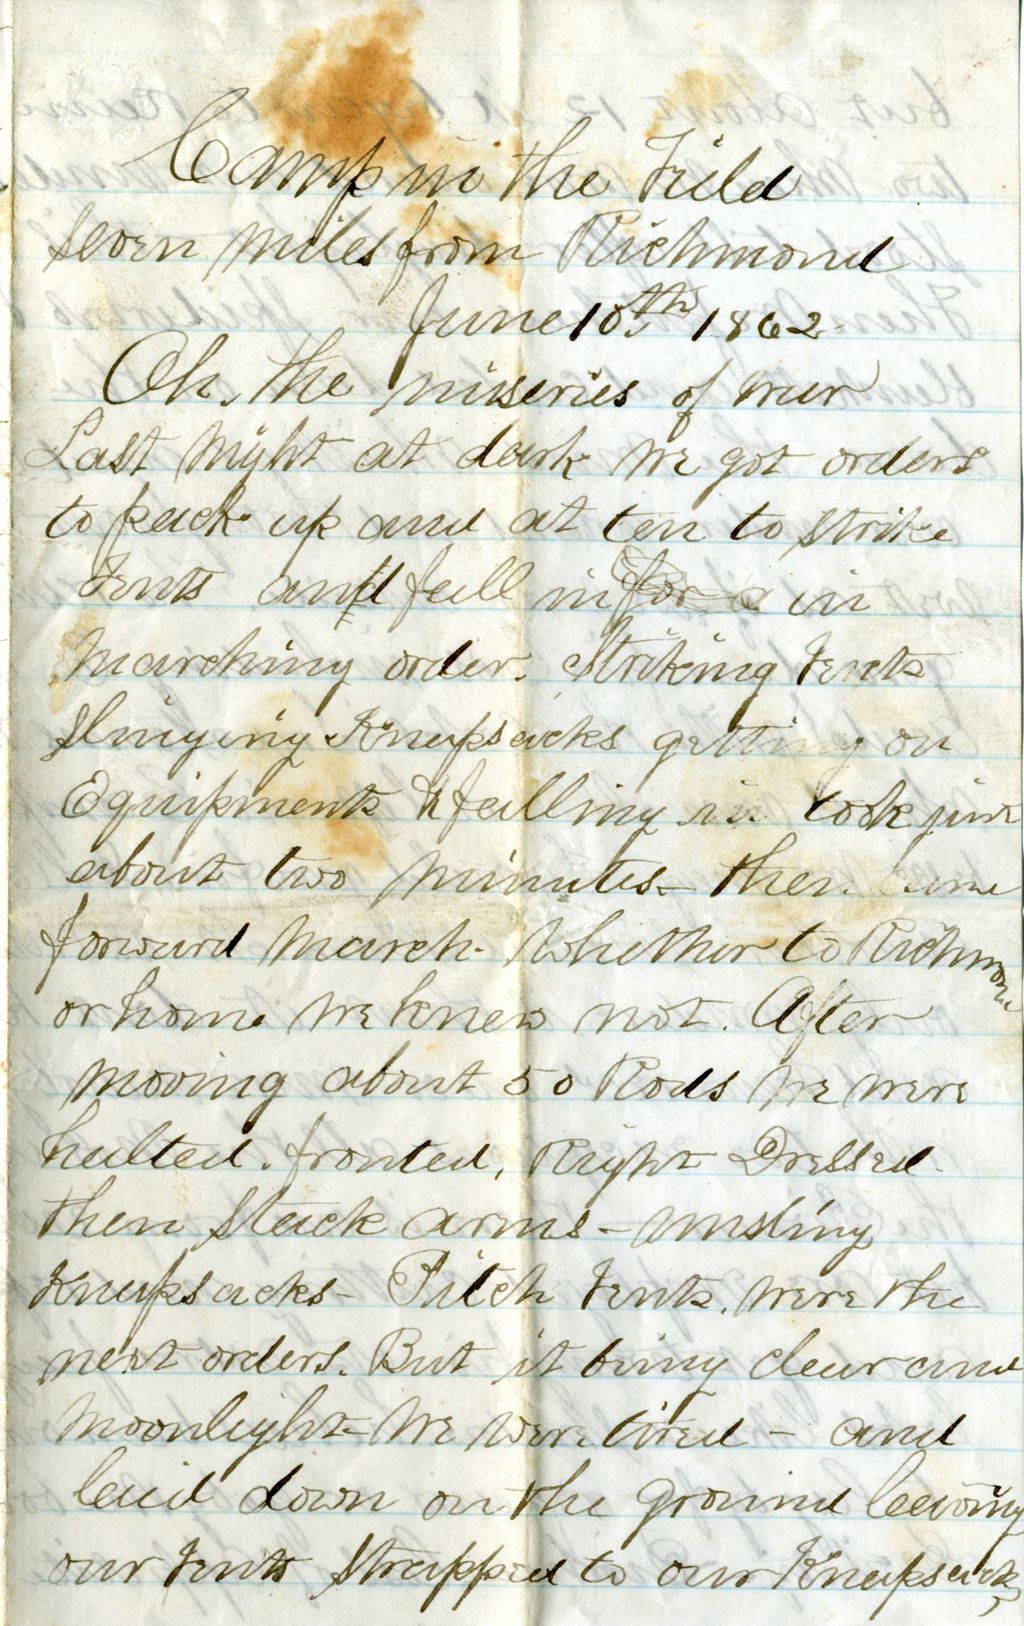 Camp in the Field
Seven miles from Richmond
June 10th 1862.
Oh, the miseries of war
Last night at dark we got orders
to pack up and at ten to strike
tents and fall in for a in
marching order. Striking tents
Slinging Knapsacks getting on
Equipments & falling in took just
about two minutes - then came
forward march. Whether to Richmond
or home we knew not. After
moving about 50 Rods we were
halted. fronted, Right Dressed
then Stack arms - unsling
Knapsacks - Pitch tents. were the
next orders. But it being clear and
moonlight - we were tired - and
laid down on the ground leaving
our tents strapped to our Knapsacks,